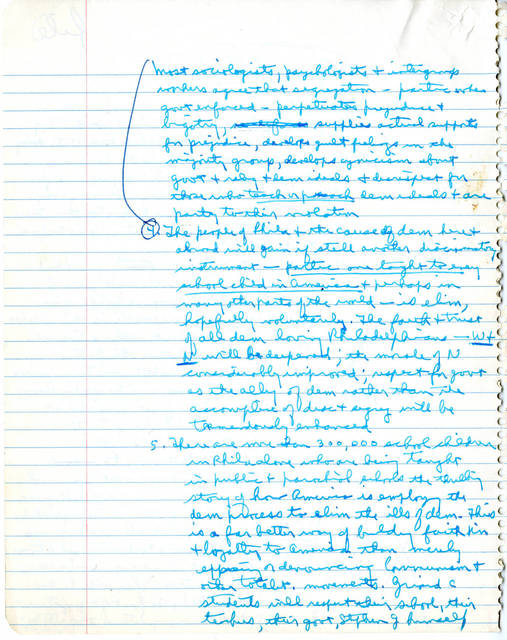 Most sociologists, psychologists + intergroup
workers agree that segregation – partic when
govt enforced – perpetuates prejudice +
bigotry, supplies actual supports
for prejudice, develops guilt feelings in the
majority group, develops cynicism about
govt + relig + dem ideals + disrespect for
those who teach or preach dem ideals + are
party to their violation
4. The people of Phila + the cause of dem here +
abroad will gain if still another discriminatory
instrument – partic one taught to every
school child in America + perhaps in
many other parts of the world – is elim,
hopefully voluntarily. The faith + trust
of all dem loving Philadelphians – W +
N will be deepened; the morale of N
considerably improved; respect for govt
as the ally of dem rather than the
accomplice of disc + segreg will be
tremendously enhanced
5. There are more than 300,000 school children
in Phila alone who are being taught
in public + parochial schools the thrilling
story of how America is employg the
dem process to elim the ills of dem. This
is a far better way of buildg faith in
+ loyalty to America than merely
opposing or denouncing Communism +
other totalit. movements. Girard C
students will respect their school, their
teachers, their govt, Stephen G himself